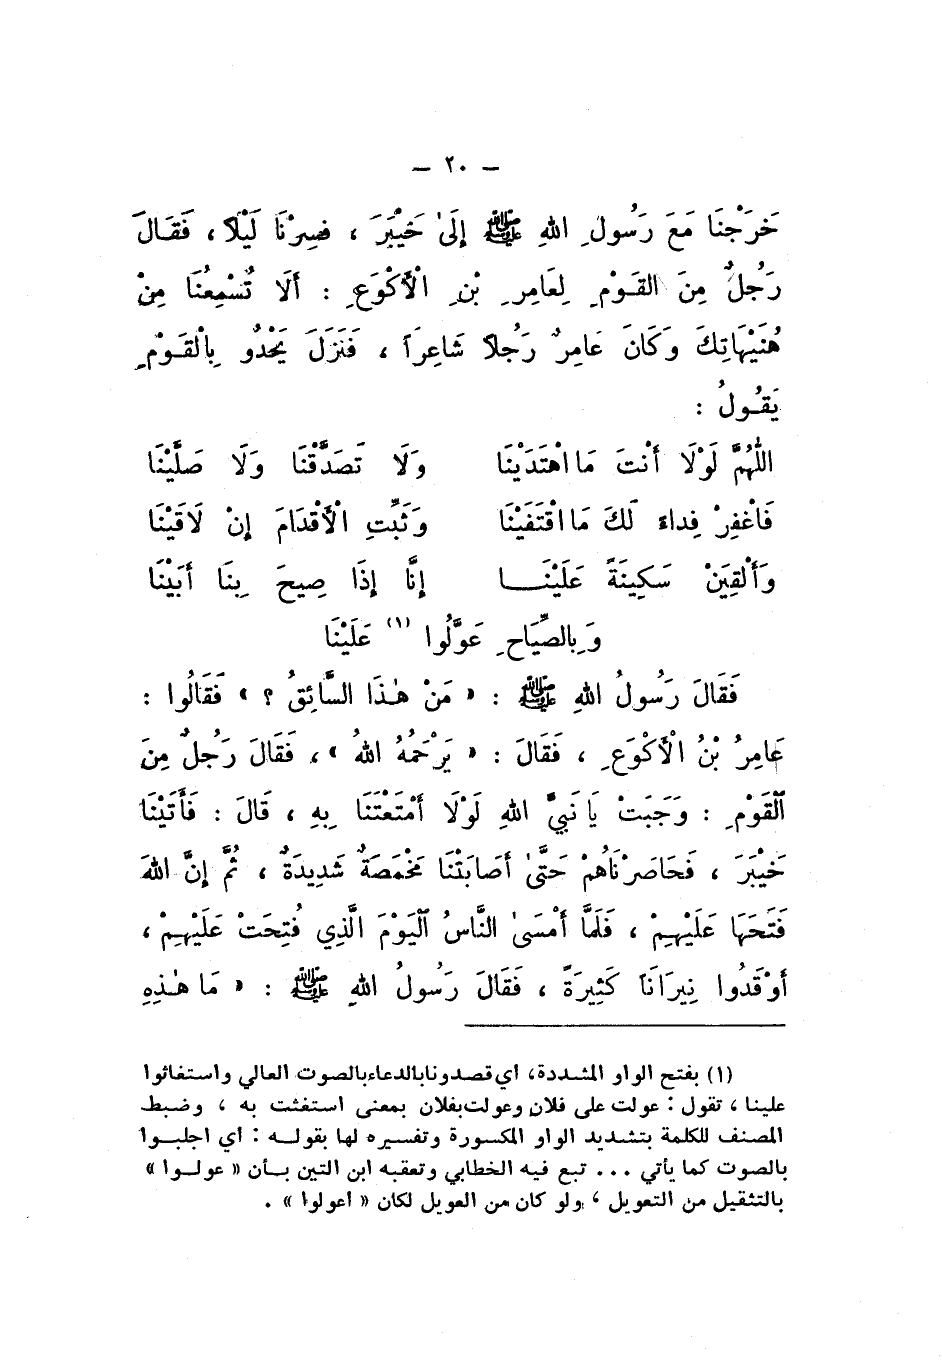 – ٢٠ –
خَرَجْنَا مَعَ رَسُولِ اللهِ ﷺ إِلَىٰ خَيْبَرَ ، فَسِرْنَا لَيْلًا ، فَقَالَ
رَجُلٌ مِنَ القَوْمِ لِعَامِرِ بْنِ الْأَكْوَعِ : أَلَا تُسْمِعُنَا مِنْ
هُنَيْهَاتِكَ وَكَانَ عَامِرٌ رَجُلًا شَاعِرًا ، فَنَزَلَ يَحْدُو بِالْقَوْمِ
يَقُولُ :
اللَّهُمَّ لَوْلَا أَنْتَ مَا اهْتَدَيْنَا وَلَا تَصَدَّقْنَا وَلَا صَلَّيْنَا
فَاغْفِرْ فِداءً لَكَ مَا اقْتَفَيْنَا وَثَبِّتِ الْأَقْدَامَ إِنْ لَاقَيْنَا
وَأَلْقِيَنْ سَكِينَةً عَلَيْنَا إِنَّا إِذَا صِيحَ بِنَا أَبَيْنَا
وَبِالصِّيَاحِ عَوَّلُوا (١) عَلَيْنَا
فَقَالَ رَسُولُ اللهِ ﷺ : « مَنْ هٰذَا السَّائِقُ ؟ » فَقَالُوا :
عَامِرُ بْنُ الْأَكْوَعِ ، فَقَالَ : « يَرْحَمُهُ اللهُ » ، فَقَالَ رَجُلٌ مِنَ
الْقَوْمِ : وَجَبَتْ يَا نَبِيَّ اللهِ لَوْلَا أَمْتَعْتَنَا بِهِ ، قَالَ : فَأَتَيْنَا
خَيْبَرَ ، فَحَاصَرْنَاهُمْ حَتَّىٰ أَصَابَتْنَا مَخْمَصَةٌ شَدِيدَةٌ ، ثُمَّ إِنَّ اللهَ
فَتَحَهَا عَلَيْهِمْ ، فَلَمَّا أَمْسَىٰ النَّاسُ الْيَوْمَ الَّذِي فُتِحَتْ عَلَيْهِمْ ،
أَوْقَدُوا نِيرَانًا كَثِيرَةً ، فَقَالَ رَسُولُ اللهِ ﷺ : « مَا هٰذِهِ
(١) بفتح الواو المشددة، أي قصدونا بالدعاء بالصوت العالي واستغاثوا
علينا ، تقول : عولت على فلان وعولت بفلان بمعنى استغثت به ، وضبط
المصنف للكلمة بتشديد الواو المكسورة وتفسيره لها بقوله : أي اجلبوا
بالصوت كما يأتي ... تبع فيه الخطابي وتعقبه ابن التين بأن « عولوا »
بالتثقيل من التعويل ، ولو كان من العويل لكان « اعولوا » .